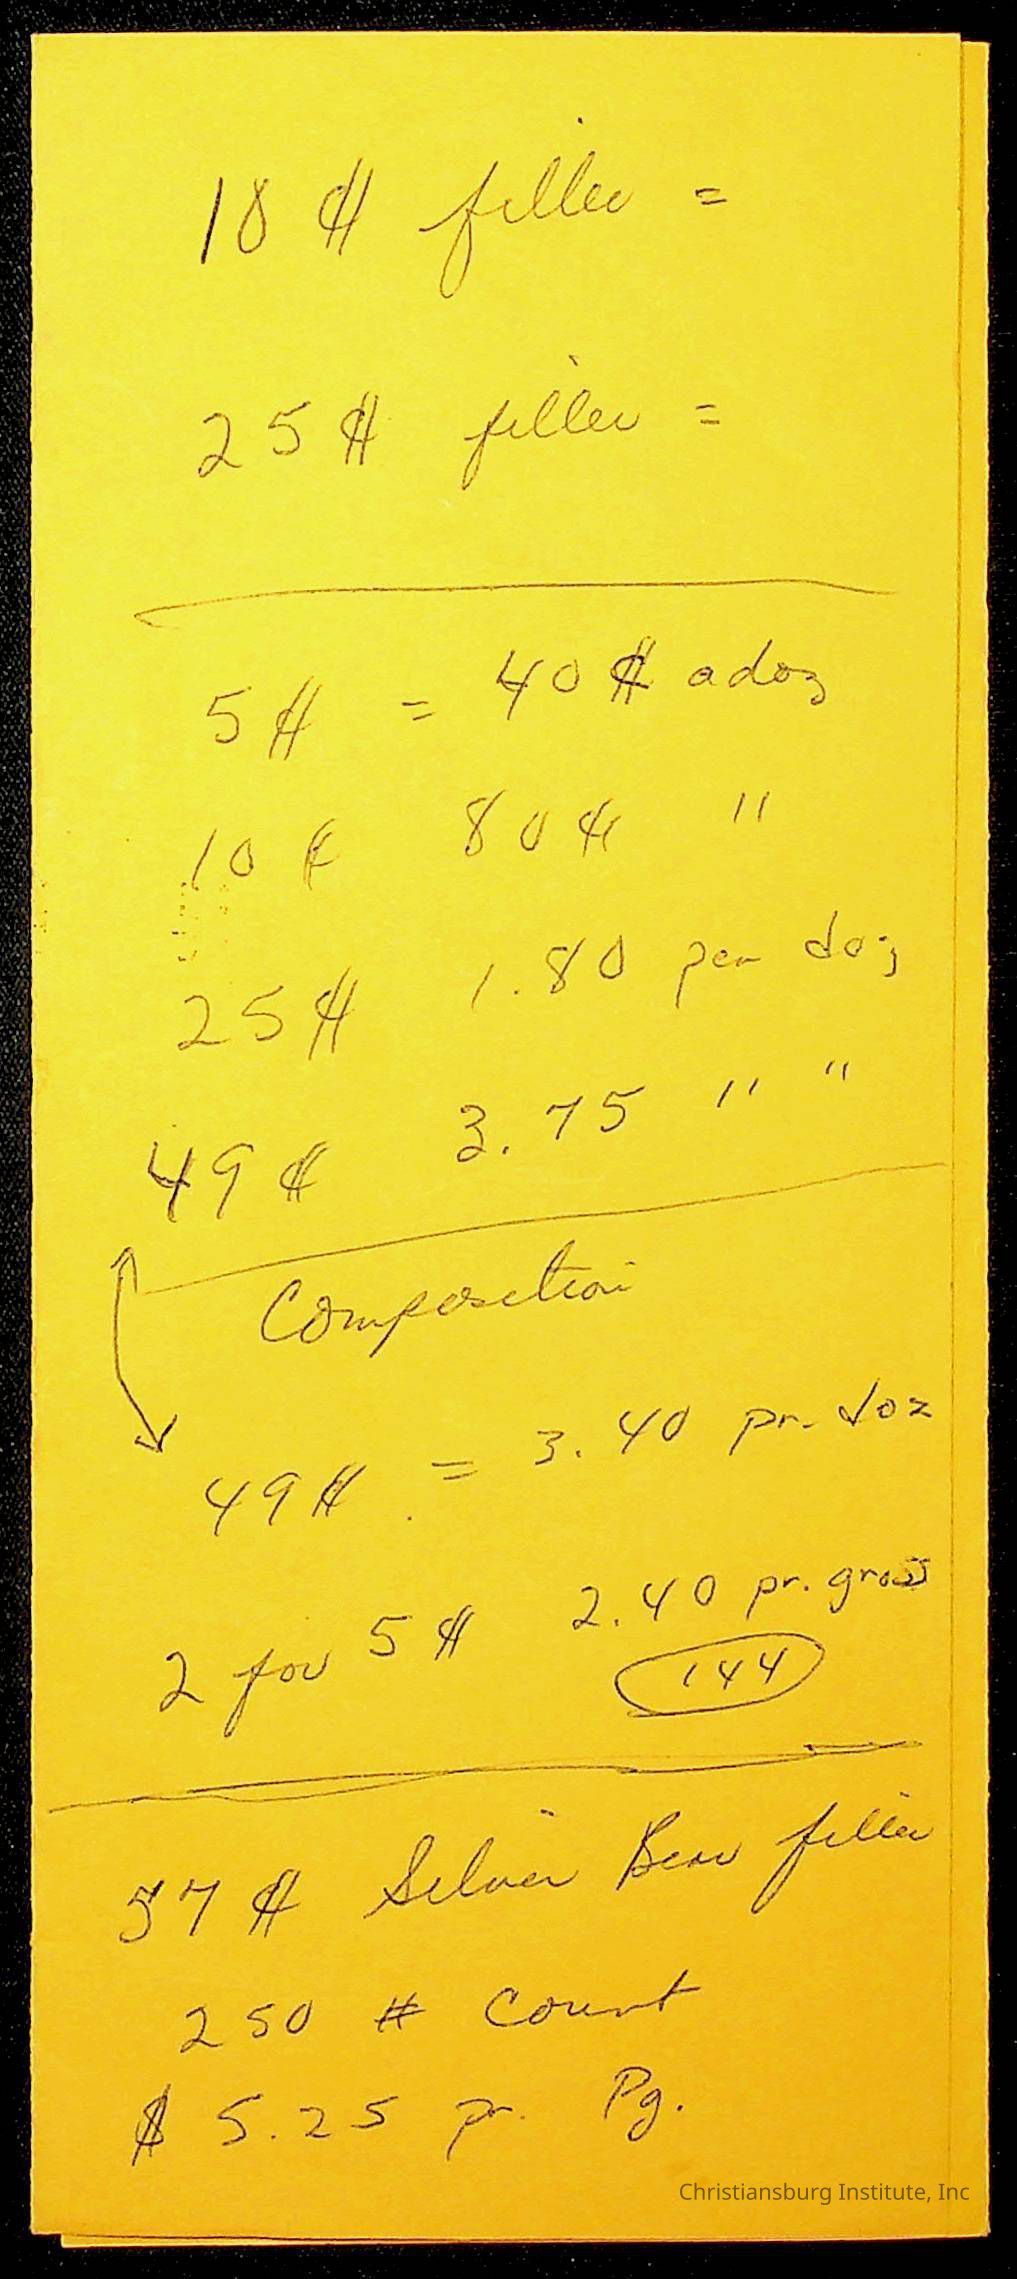 18 ¢ filler =
25 ¢ filler =
5 ¢ = 40 ¢ a doz
10 ¢ 80 ¢ "
25 ¢ 1.80 per doz
49 ¢ 3.75 " "
Composition
49 ¢ = 3.40 pr. doz
2 for 5 ¢ 2.40 pr. gross
144
57 ¢ Silver Bear filler
250 # Count
$ 5.25 pr. Pg.
Christiansburg Institute, Inc